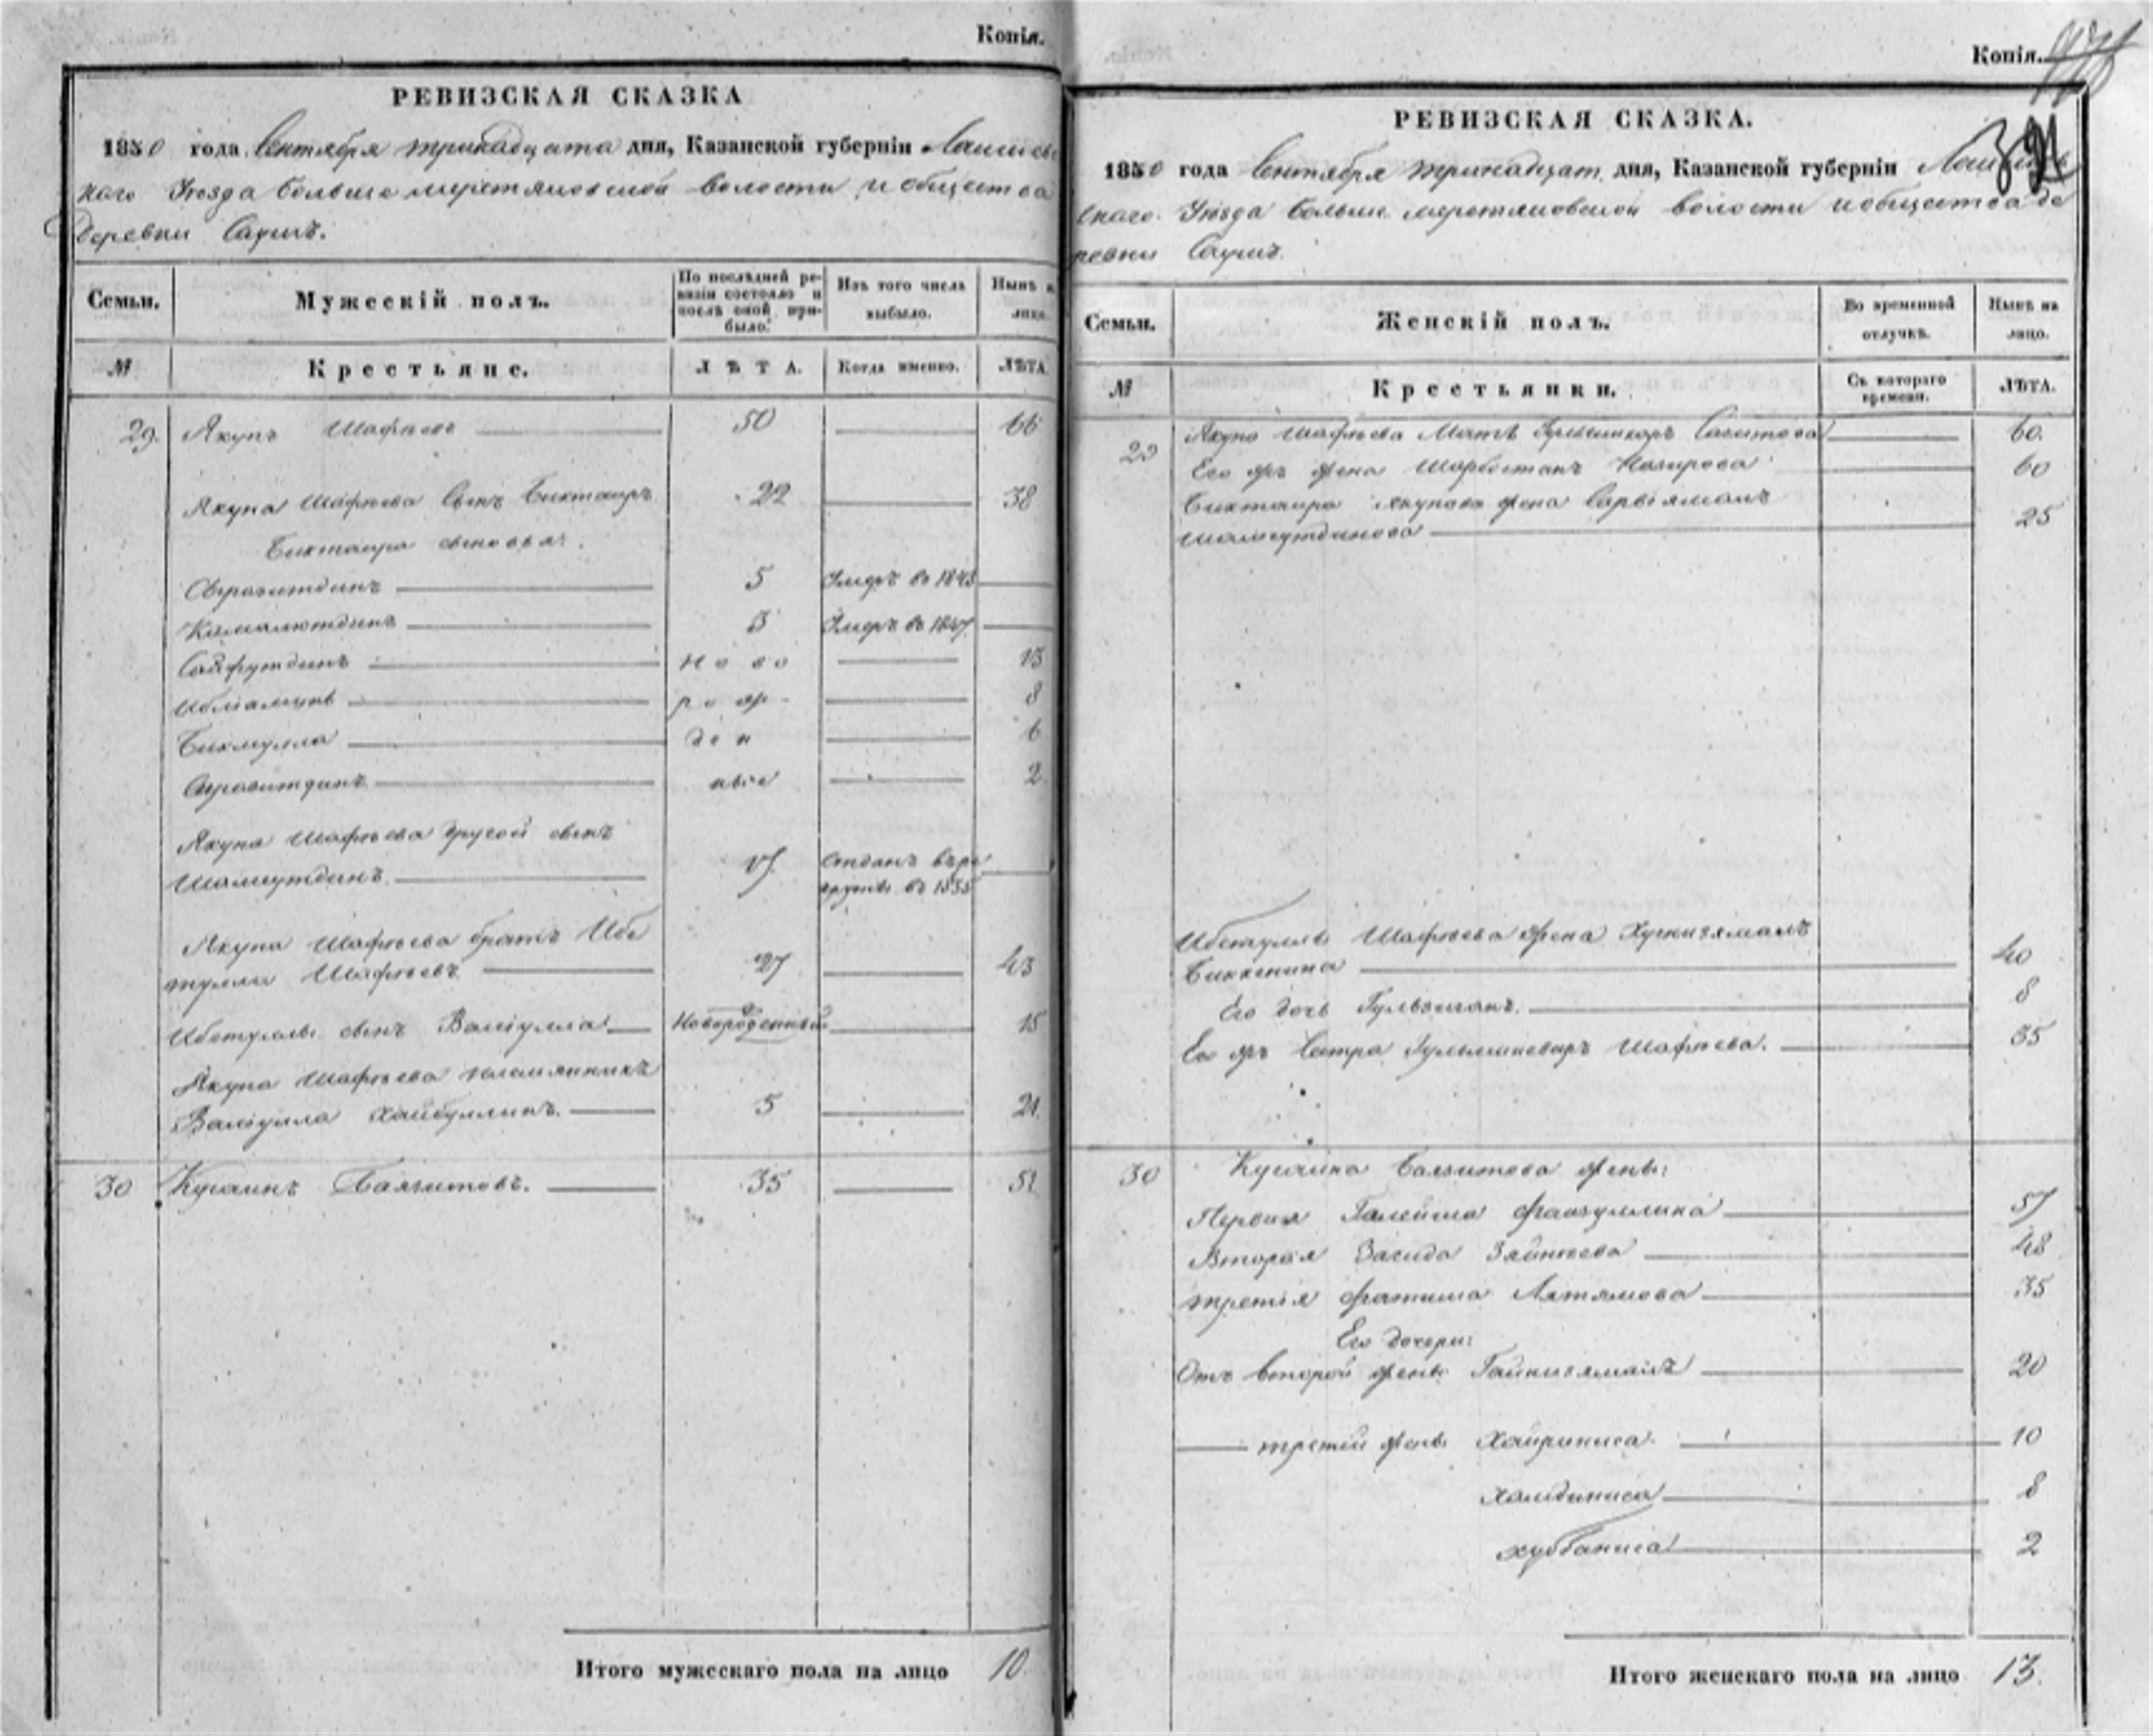 Копія.
РЕВИЗСКАЯ СКАЗКА
1850 года Сентября тринадцата дня, Казанской губерніи Лаишев
скаго Уезда больше меретяковской волости и общества
деревни Сауш.
Семьи. Мужескій полъ. По послѣдней ре- Изъ того числа Нынѣ н
визіи состояло и выбыло. лицо
послѣ оной при-
было.
№ Крестьяне. ЛѢТА. Когда именно. ЛѢТА
29. Якупъ Шафѣевъ 50 66
Якупа Шафѣева сынъ Биктаиръ 22 38
Биктаира сыновья:
5 Умеръ въ 1843
Камалютдинъ 3 Умеръ въ 1847
Сайфутдинъ ново 13
рож- 8
Бикмулла ден 6
ные 2
Якупа Шафѣева другой сынъ
Шамсутдинъ 17 Отданъ въ ре
круты въ 1835
Якупа Шафѣева братъ Ибе
тулла Шафѣевъ 27 43
Ибетуллы сынъ Валіулла Новорожденный 15
Якупа Шафѣева племянникъ
Валіулла Хайбуллинъ. 5 21.
30 Кучаинъ Баязитовъ. 35 51
Итого мужескаго пола на лицо 10.
Копія.
РЕВИЗСКАЯ СКАЗКА.
1850 года Сентября тринадцат. дня, Казанской губерніи Лаишев
скаго Уезда больше меретяковской волости и общества де
ревни Сауш.
Семьи. Женскій полъ. Во временной Нынѣ на
отлучкѣ. лицо.
№ Крестьянки. Съ котораго ЛѢТА.
времени.
29 Якупа Шафѣева Мать Сагитова 60.
Его жъ жена Шарбостанъ Назирова 60
Биктаира Якупова жена Сарвіямалъ
Шамсутдинова 25
Ибетуллы Шафѣева жена Хуснизямалъ
Биккенина 40
Его дочь 8
Его жъ Сестра Шафѣева. 35
30 Кучаина Баязитова жены:
Первая Галейша Файзуллина 57
Вторая Засида Зяйнѣева 48
третія Фатима Ахтямова 35
Его дочери:
Отъ второй жены Гайнизямалъ 20
третій жены Хайриниса 10
Халидиниса 8
Хуббаниса 2
Итого женскаго пола на лицо 13.